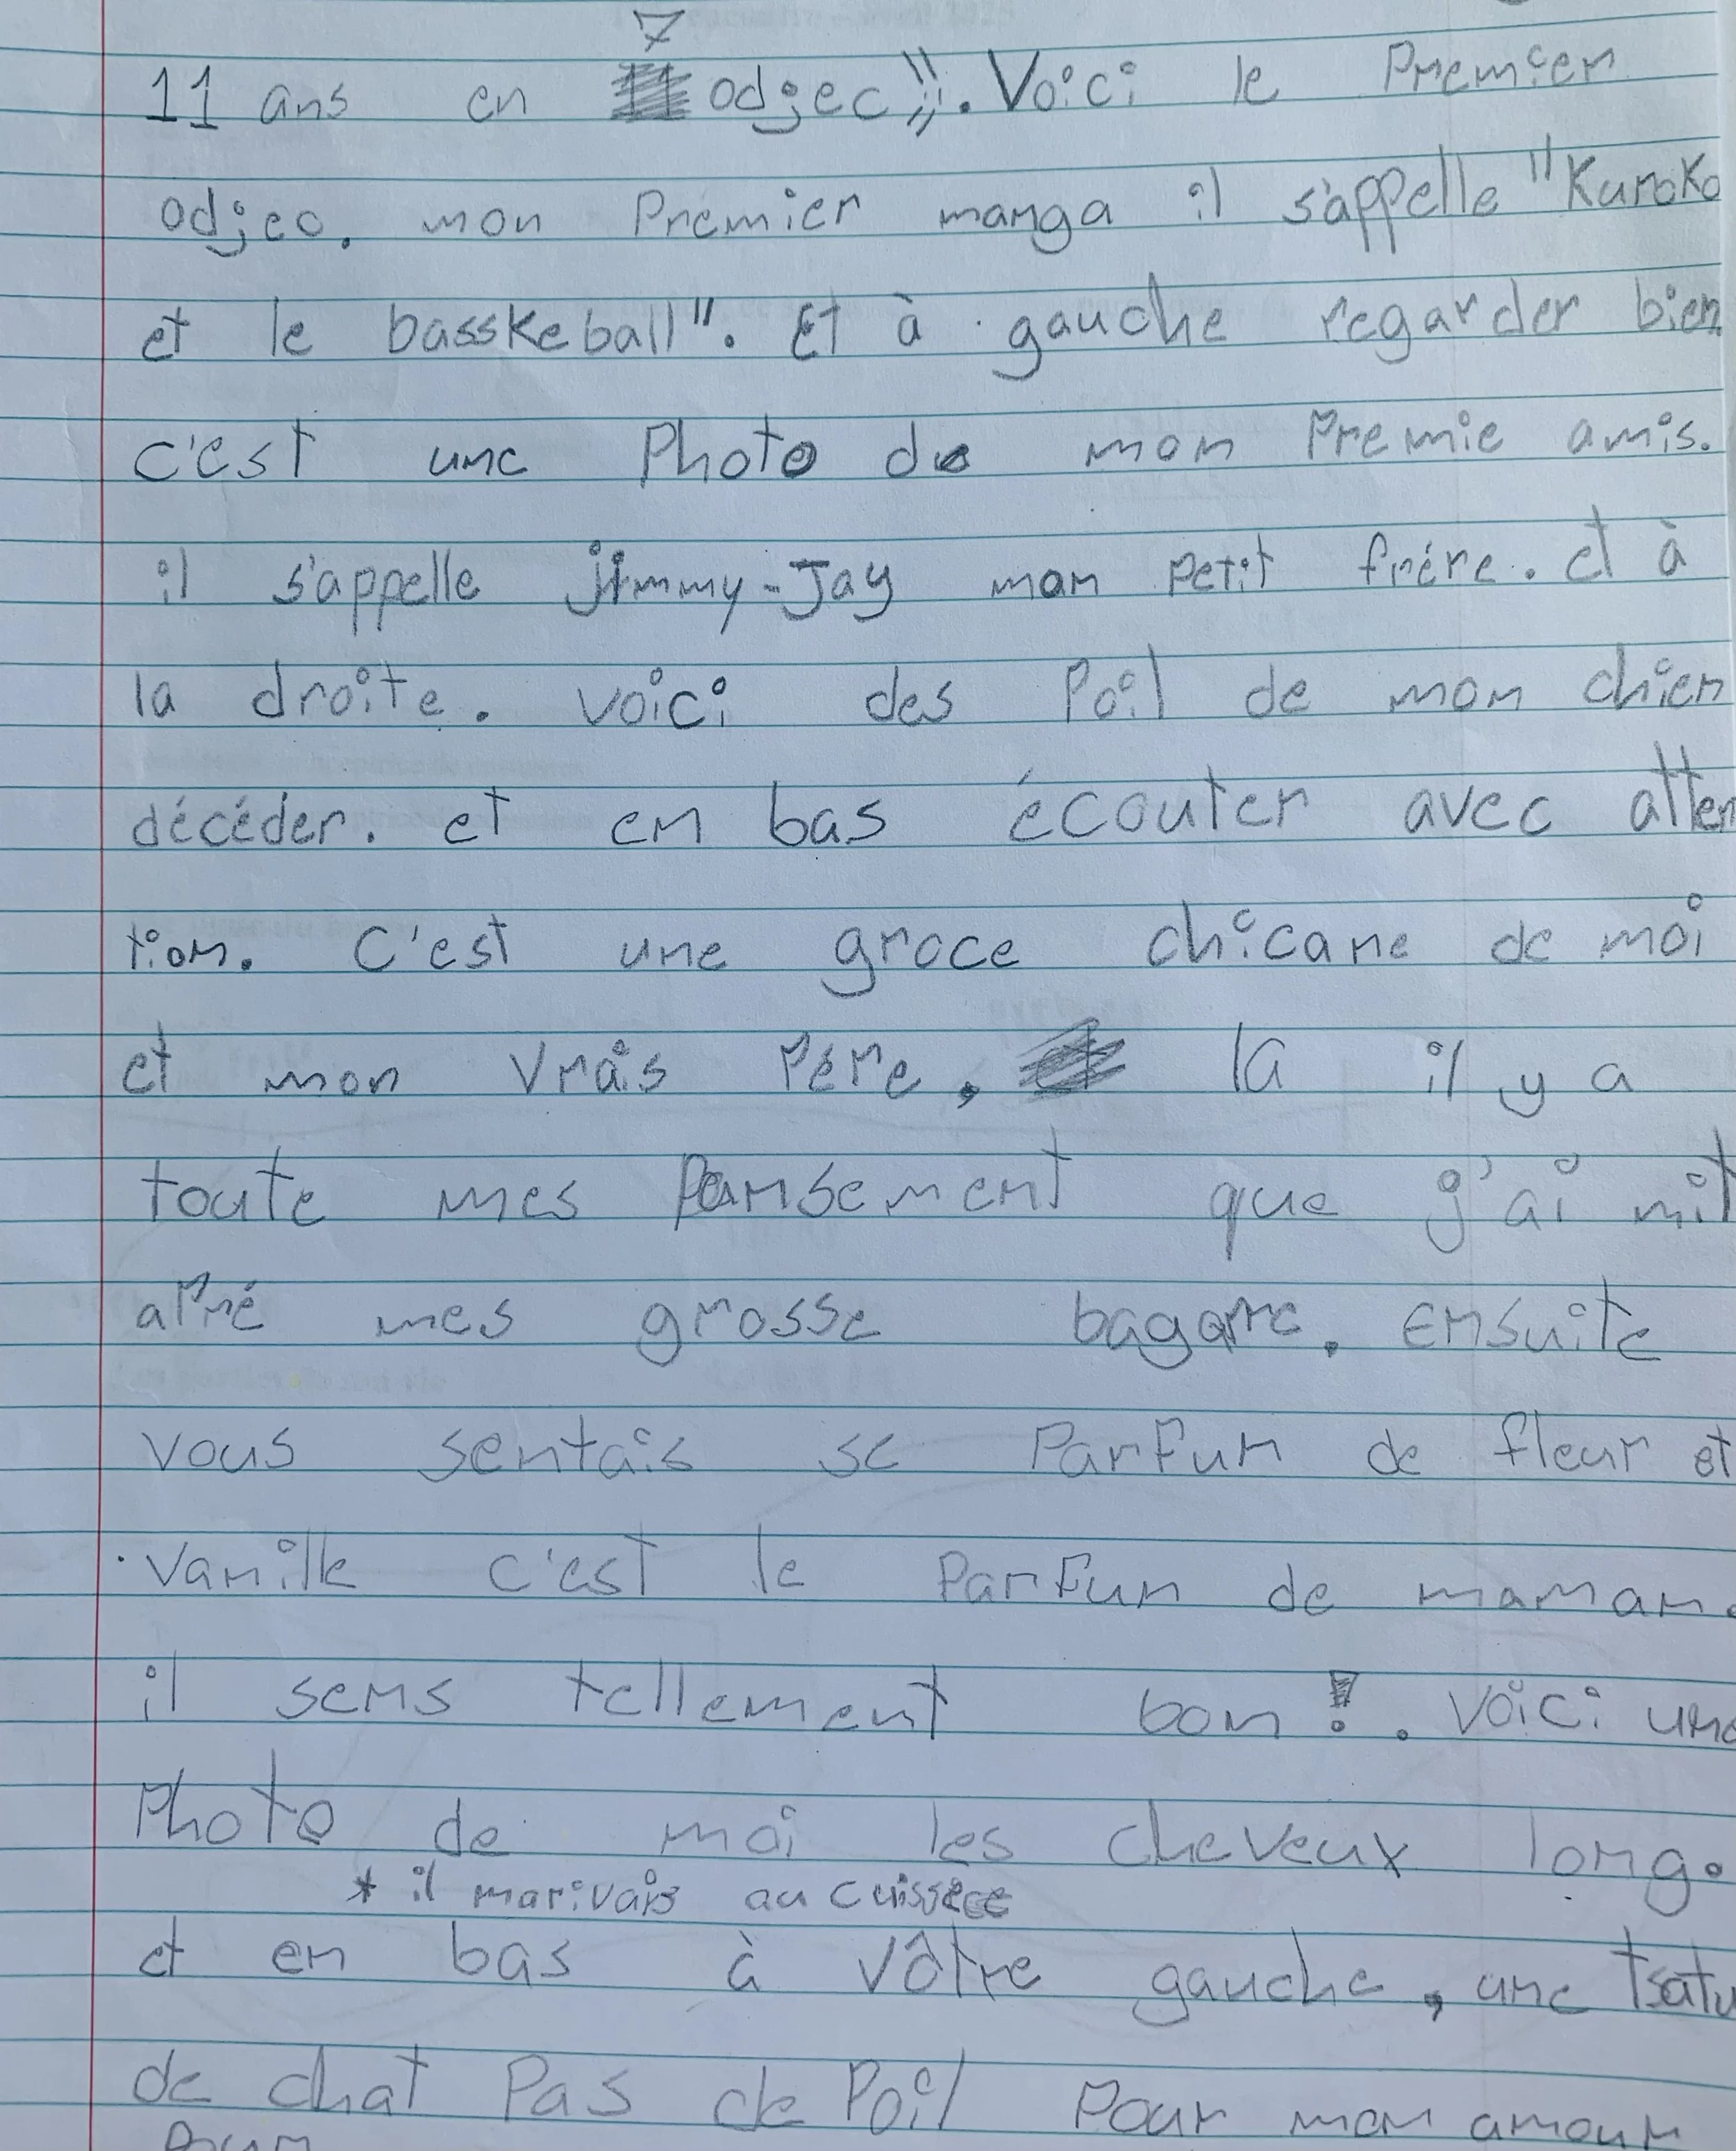 11 ans en odjec". Voici le Premier
odjec. mon Premier manga il s'appelle "Kuroko
et le basskeball". Et à gauche regarder bien
c'est une Photo de mon Premie amis.
il s'appelle jimmy-Jay mon petit frére. et à
la droite. voici des Poil de mon chien
décéder. et en bas écouter avec atten
tion. C'est une groce chicane de moi
et mon vrais Pére, la il y a
toute mes Pansement que j'ai mit
aPré mes grosse bagarre. ensuite
vous sentais se Parfum de fleur et
vanille c'est le Parfum de maman.
il sens tellement bon!. Voici une
Photo de moi les cheveux long.
* il marivais au cuisse
et en bas à vôtre gauche, une tsatu
de chat Pas de Poil Pour mon amour
Pour